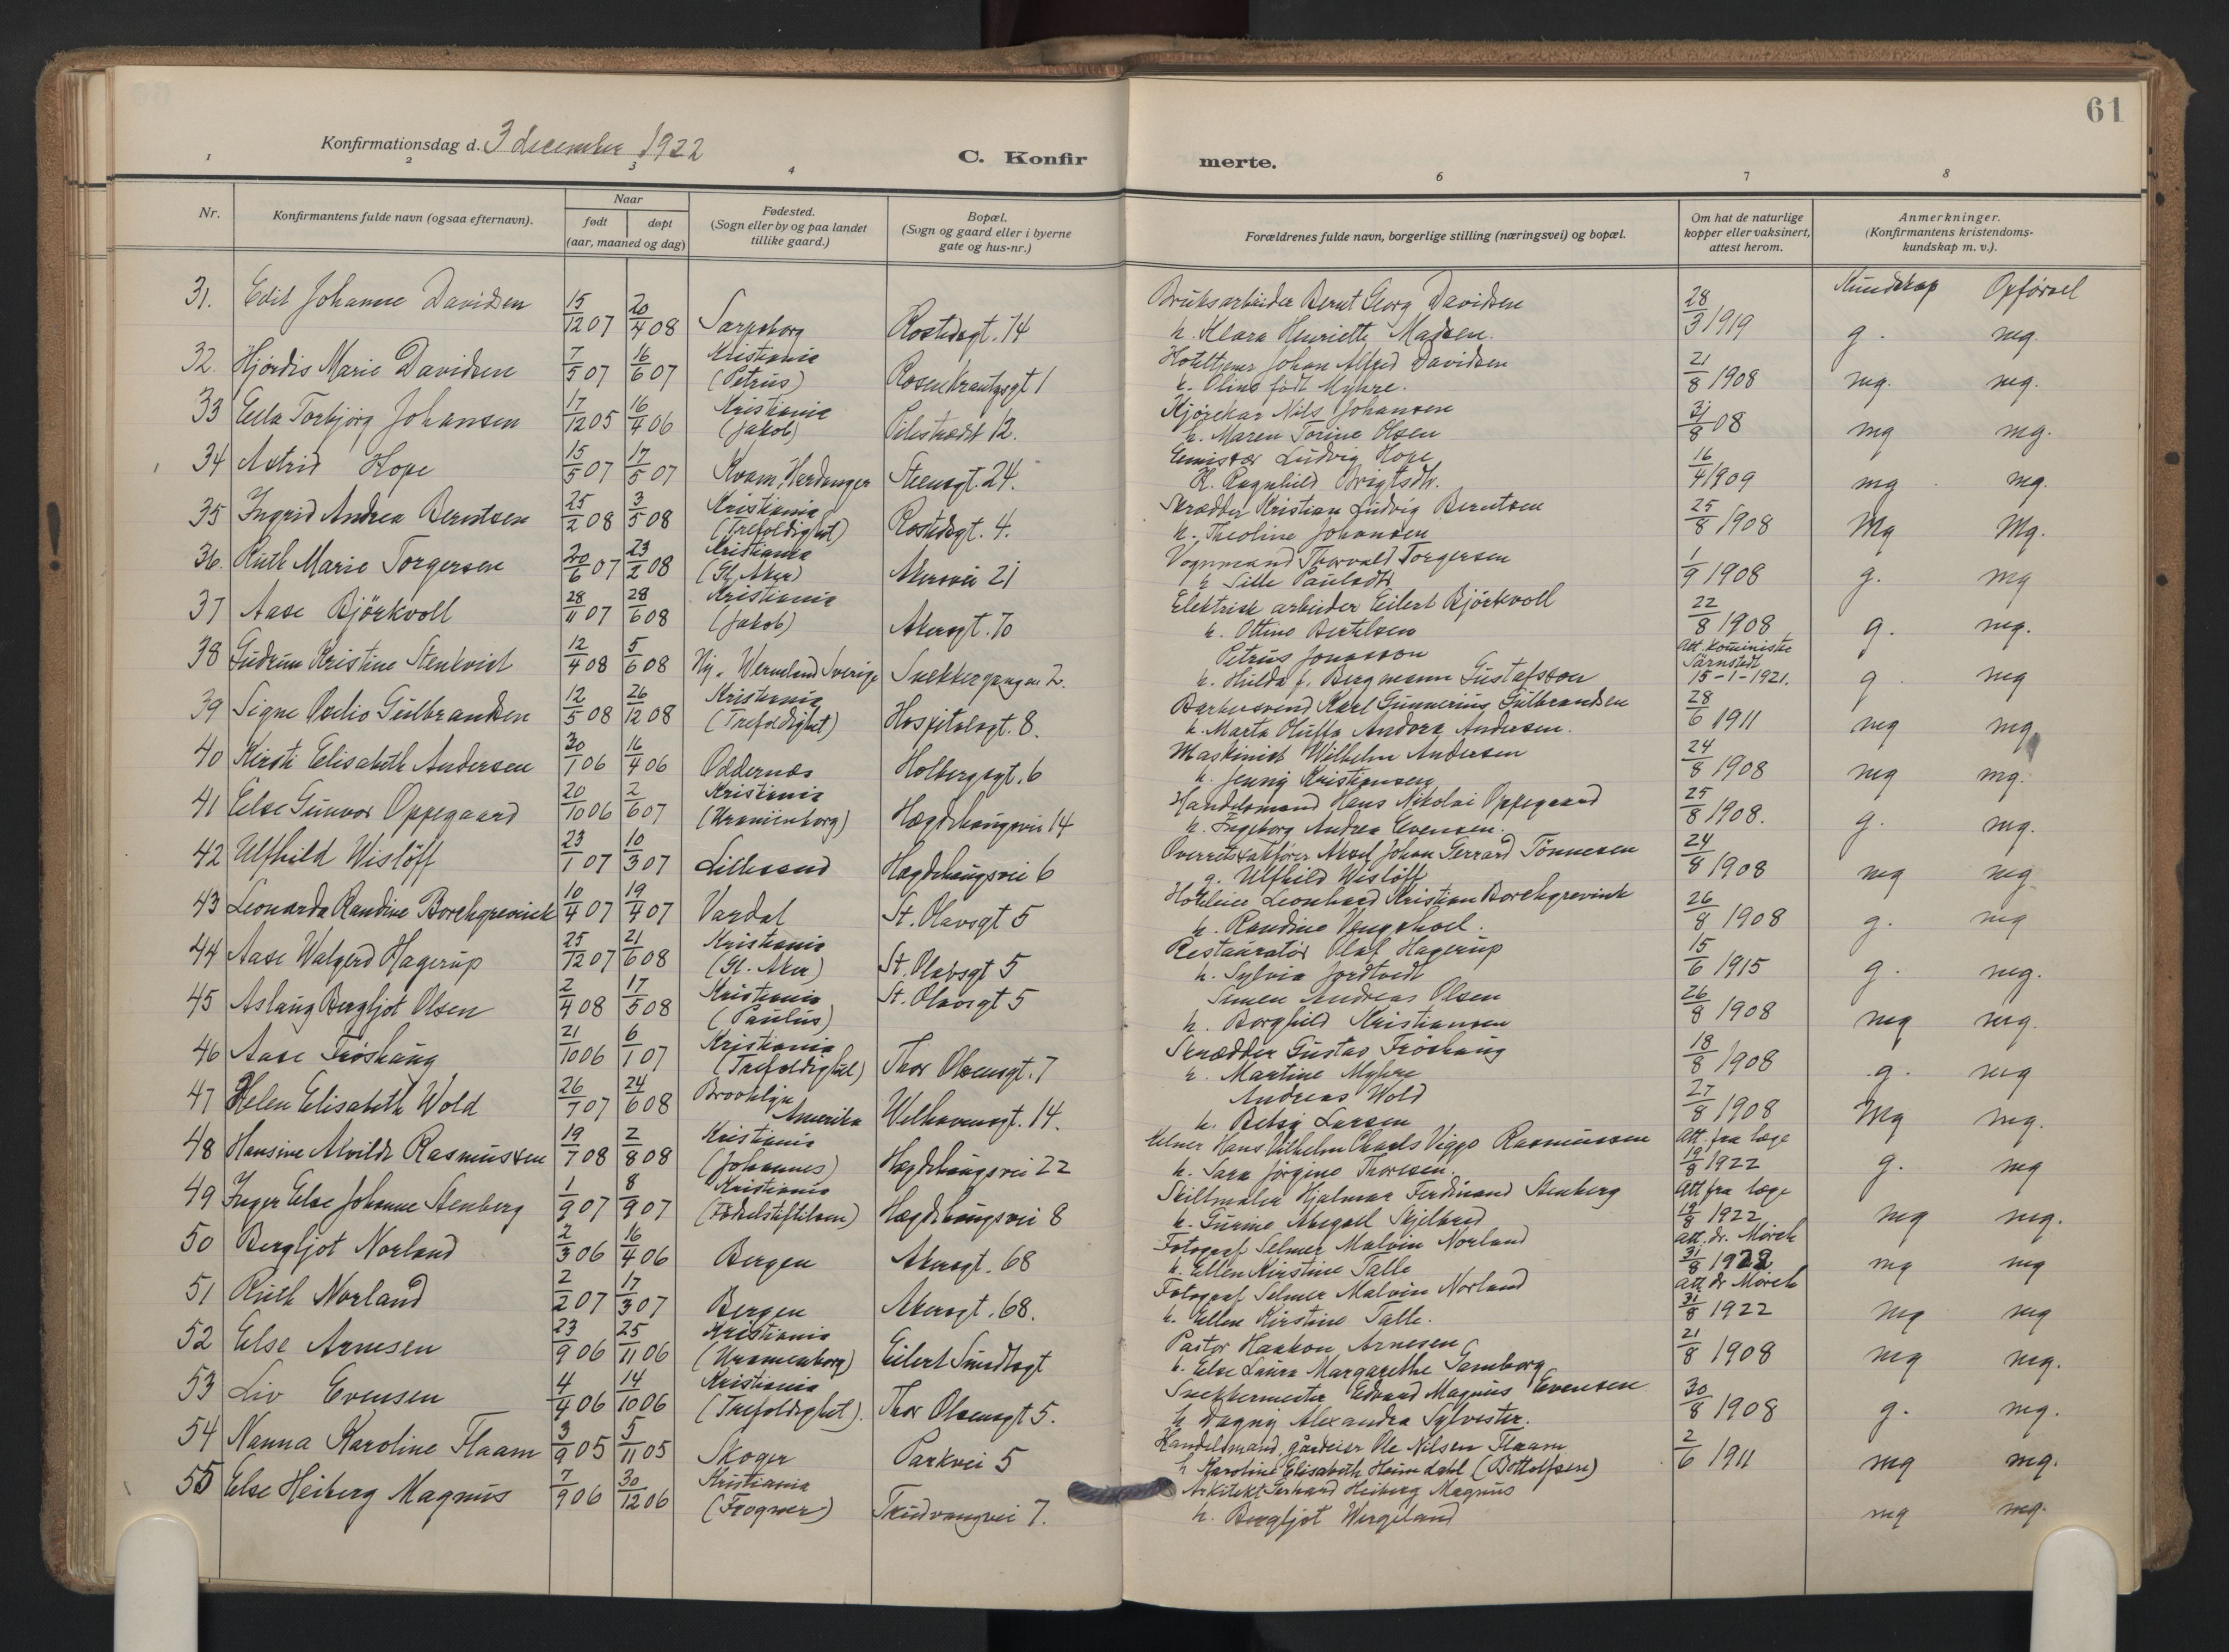 61
Konfirmationsdag d. 3 december 1922
C. Konfirmerte.
1 2 3 4 6 7 8
Nr. Konfirmantens fulde navn (ogsaa efternavn). Naar født døpt (aar, maaned og dag) Fødested. (Sogn eller by og paa landet tillike gaard.) Bopæl. (Sogn og gaard eller i byerne gate og hus-nr.) Forældrenes fulde navn, borgerlige stilling (næringsvei) og bopæl. Om hat de naturlige kopper eller vaksinert, attest herom. Anmerkninger. (Konfirmantens kristendomskundskap m. v.).
Kundskap Opførsel
31. Edit Johanne Davidsen 15/12 07 20/4 08 Sarpsborg Rostedsgt. 14 Bruksarbeider Bernt Georg Davidsen h. Klara Henriette Madsen. 28/3 1919 g. mg.
32. Hjørdis Marie Davidsen 7/5 07 16/6 07 Kristiania (Petrus) Rosenkrantzgt 1 Hoteltjener Johan Alfred Davidsen h. Oline født Myhre. 21/8 1908 mg. mg.
33 Ella Torbjørg Johansen 17/12 05 16/4 06 Kristiania (Jakob) Pilestrædt 12. Kjørekar Nils Johansen h. Maren Torine Olsen 31/8 08 mg mg.
34 Astrid Hope 15/5 07 17/5 07 Kvam, Hardanger Steensgt. 24. Emisær Ludvig Hope H. Ragnhild Brigtsdtr. 16/4 1909 mg mg.
35 Ingrid Andrea Berntsen 25/2 08 3/5 08 Kristiania (Trefoldighet) Rostedsgt. 4. Skrædder Kristian Ludvig Berntsen h. Theoline Johansen 25/8 1908 Mg Mg.
36. Ruth Marie Torgersen 20/6 07 23/2 08 Kristiania (Gl. Aker) Akersvei 21 Vognmand Thorvald Torgersen h Sille Paulsdtr 1/9 1908 g. mg
37 Aase Björkvoll 28/11 07 28/6 08 Kristiania (Jakob) Akersgt. 70 Elektrisk arbeider Eilert Björkvoll h. Ottine Bertelsen 22/8 1908 g. mg.
38 Gudrun Kristine Stenkvist 12/4 08 5/6 08 Ny, Wermland Sverige Snekkergangen 2. Petrus Jonasson h. Hulda f. Bergmann Gustafsson Att. kominister Särnstedt 15-1-1921. g mg
39 Signe Odlio Gulbrandsen 12/5 08 26/12 08 Kristiania (Trefoldighet) Hospitalsgt. 8. Barbersvend Karl Gunnerius Gulbrandsen h. Marta Oluffa Andora Andersen. 28/6 1911 mg mg
40 Kirsti Elisabeth Andersen 30/1 06 16/4 06 Oddernæs Holbergsgt. 6 Maskinist Wilhelm Andersen h. Jenny Kristiansen 24/8 1908 mg mg.
41 Else Gunvor Oppegaard 20/10 06 2/6 07 Kristiania (Uranienborg) Hægdehaugsvei 14 Handelsmand Hans Nikolai Oppegaard h. Ingeborg Andrea Evensen. 25/8 1908. g. mg.
42 Ulfhild Wislöff 23/1 07 10/3 07 Lillesand Hægdehaugsvei 6 Overretssakfører Aksel Johan Gerrard Tönnesen g. Ulfhild Wislöff 24/8 1908 mg mg
43 Leonarda Randine Borchgrevink 10/4 07 19/4 07 Vardal St. Olavsgt 5 Hoteleier Leonhard Kristian Borchgrevink h. Randine Vengshoel. 26/8 1908 g. mg
44 Aase Walgerd Hagerup 25/12 07 21/6 08 Kristiania (Gl. Aker) St. Olavsgt 5 Restauratör Olaf Hagerup h. Sylvia Jordtvedt 15/6 1915 g. mg.
45 Aslaug Bergljot Olsen 2/4 08 17/5 08 Kristiania (Paulus) St. Olavsgt 5 Simen Andreas Olsen h. Borghild Kristiansen 26/8 1908 mg mg.
46 Aase Fröshaug 21/10 06 6/1 07 Kristiania (Trefoldighet) Thor Olsensgt. 7 Skrædder Gustav Fröshaug h. Martine Myhre 18/8 1908 g. mg
47 Helen Elisabeth Wold 26/7 07 24/6 08 Brooklyn Amerika Welhavensgt. 14. Andreas Wold h. Betsy Larsen 27/8 1908 Mg mg.
48 Hansine Alvilde Rasmussen 19/7 08 2/8 08 Kristiania (Johannes) Hægdehaugsvei 22 Kelner Hans Vilhelm Charls Viggo Rasmussen h. Sara Jörgine Thoresen. Att. fra læge 19/8 1922 g. mg
49 Inger Else Johanne Stenberg 1/9 07 8/9 07 Kristiania (Fødselsstiftelsen) Hægdehaugsvei 8 Skiltmaler Hjalmar Ferdinand Stenberg h. Gurine Abegael Skjelbred Att fra læge 19/8 1922 mg mg.
50 Bergljot Norland 2/3 06 16/4 06 Bergen Akersgt. 68 Fotograf Selmer Malvin Norland h. Ellen Kirstine Talle att. dr. Mörch 31/8 1922 mg mg
51 Ruth Norland 2/2 07 17/3 07 Bergen Akersgt. 68. Fotograf Selmer Malvin Norland h. Ellen Kirstine Talle. att. dr Mörch 31/8 1922 mg mg
52 Else Arnesen 23/9 06 25/11 06 Kristiania (Uranienborg) Eilert Sundtsgt Pastor Haakon Arnesen h. Else Laura Margarethe Gamborg 21/8 1908 mg mg.
53 Liv Evensen 4/4 06 14/10 06 Kristiania (Trefoldighet). Thor Olsensgt 5. Snekkermester Edvard Magnus Evensen h Dagny Alexandra Sylvester. 30/8 1908 g. mg.
54 Nanna Karoline Flaam 3/9 05 5/11 05 Skoger Parkvei 5 Handelsmand, gårdeier Ole Nilsen Flaam h Karoline Elisabeth Heimdahl (Bottolfsen) 2/6 1911 mg mg.
55 Else Heiberg Magnus 7/9 06 30/12 06 Kristiania (Frogner) Trudvangvei 7. Arkitekt Gerhard Heiberg Magnus h. Bergljot Wergeland mg mg.